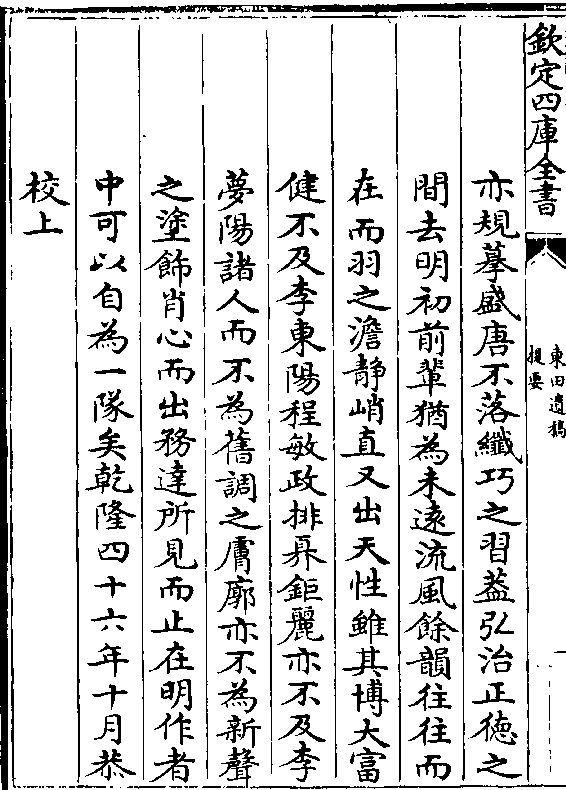 欽定四庫全書
東田遺稿
提要
亦規摹盛唐不落纖巧之習葢弘治正德之
間去明初前輩猶為未遠流風餘韻往往而
在而羽之澹静峭直又出天性雖其博大富
健不及李東陽程敏政排奡鉅麗亦不及李
夢陽諸人而不為舊調之膚廓亦不為新聲
之塗飾肖心而出務達所見而止在明作者
中可以自為一隊矣乾隆四十六年十月恭
校上